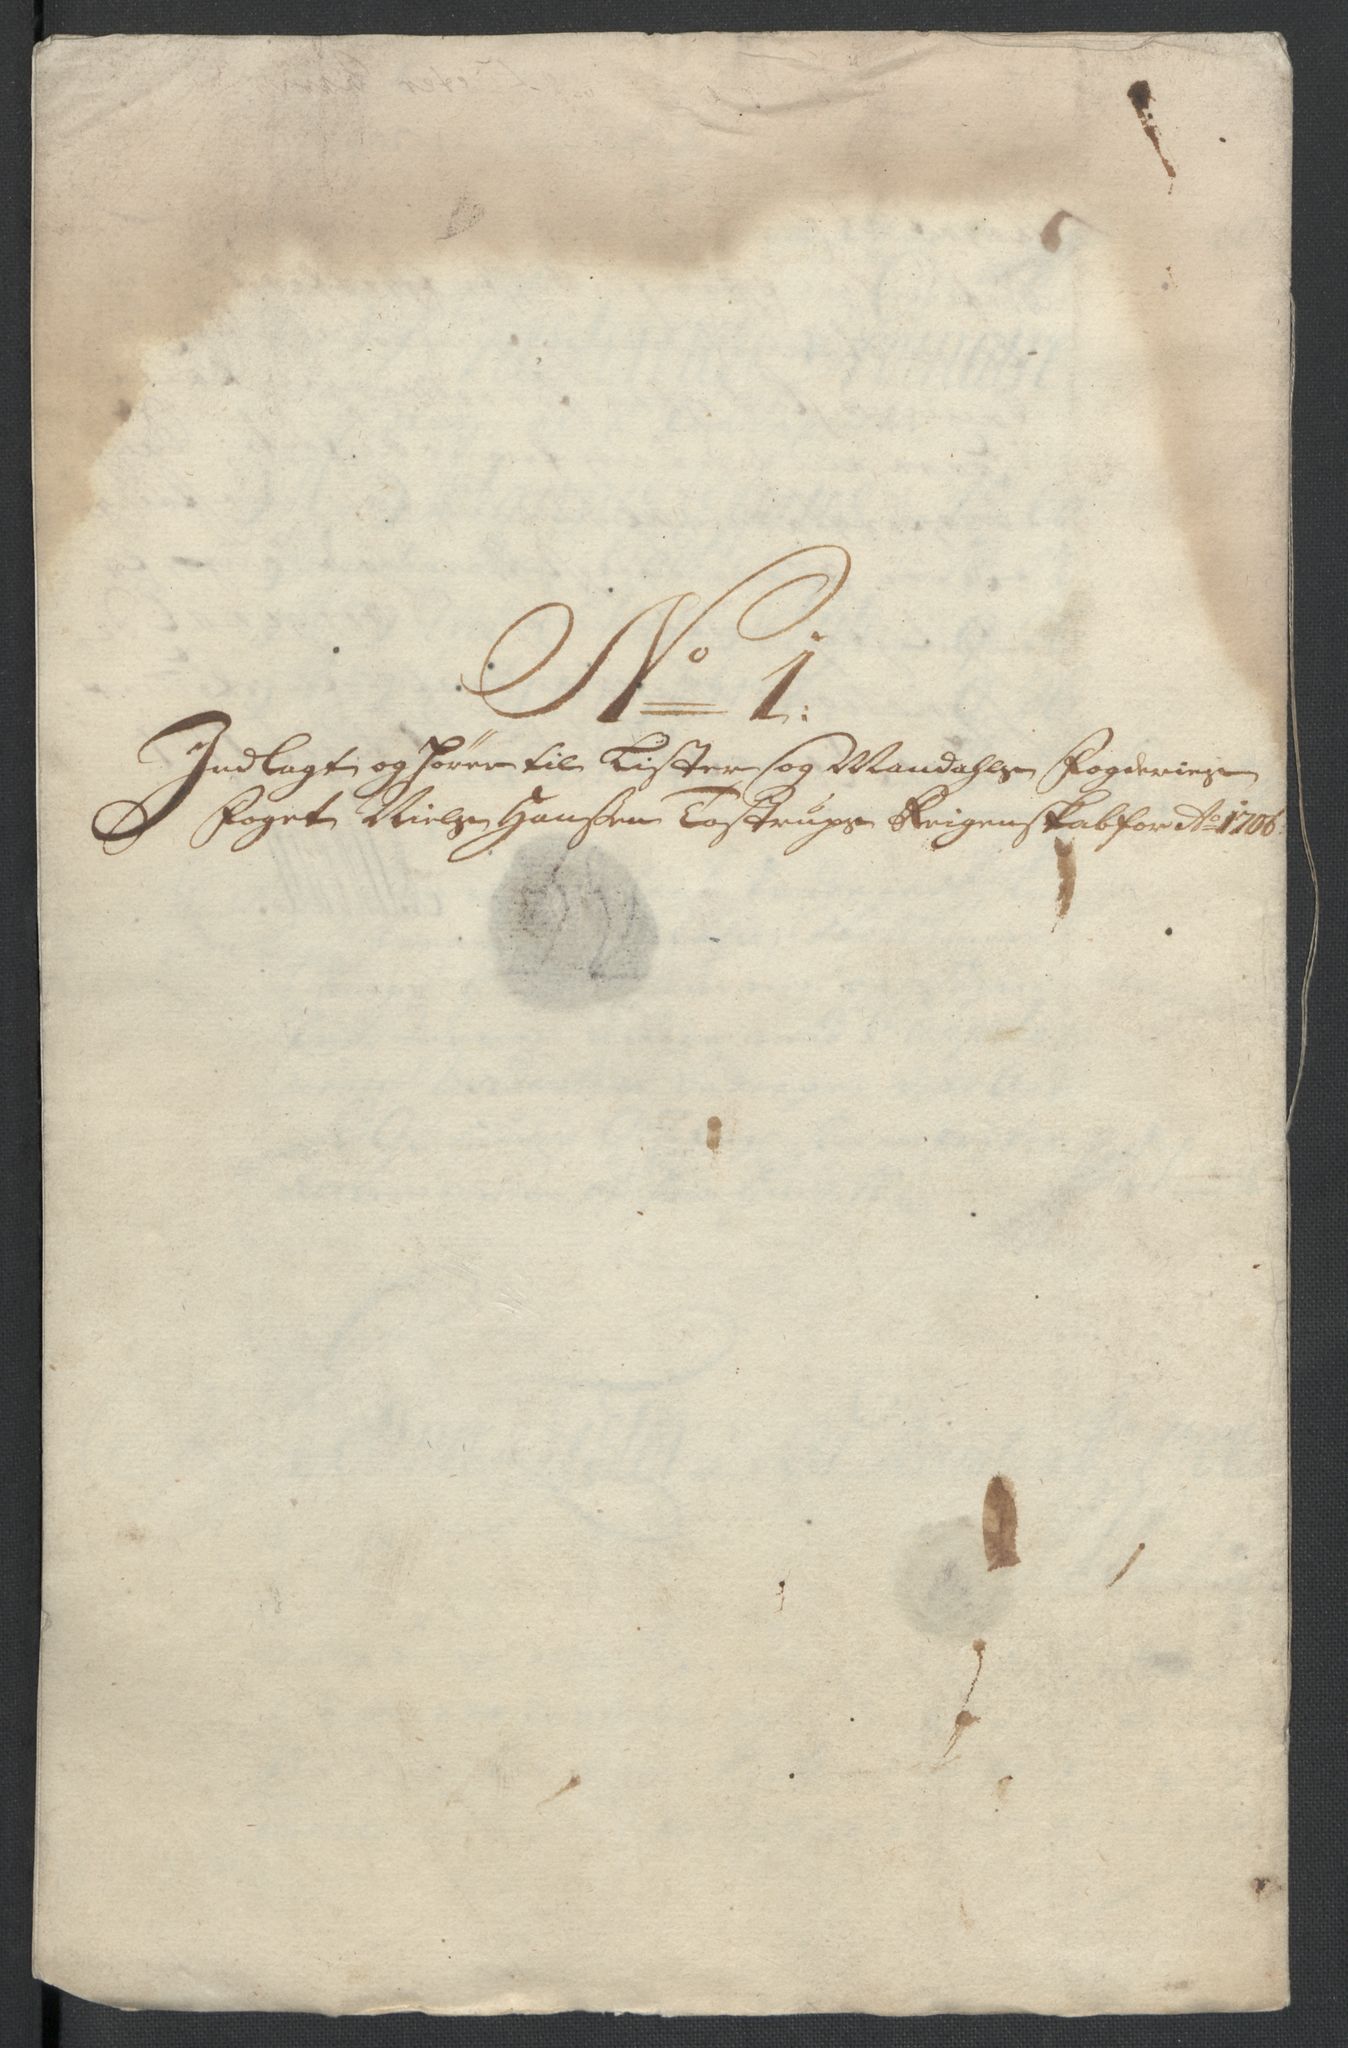 No 1.
Indlagt og hører til Lister og Mandahls Fogderies
Foget Niels Hanssen Tostrups Reigenskab for Ao 1706